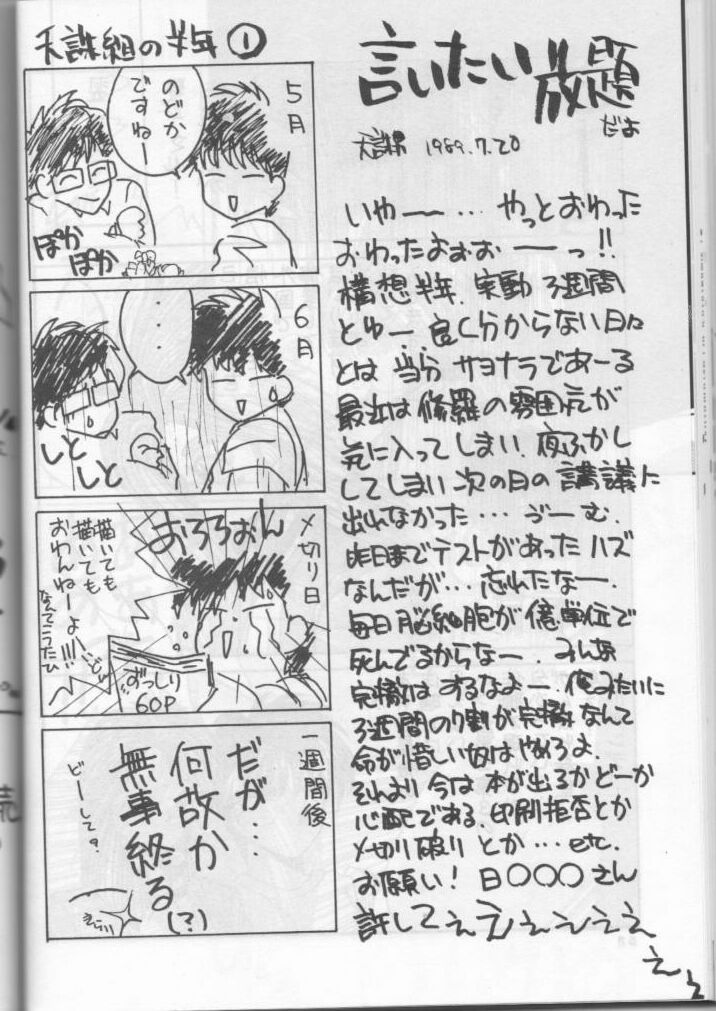 天誅組の半年①
5月
のどか
ですねー
ぽか
ぽか
6月
・・・
しと
しと
〆切り日
おろろおん
描いても
描いても
おわんねーよー!!!
なんてこったい
ずっしり
60P
一週間後
だが…
何故か
無事終る
(?)
どーして?
言いたい放題
だよ
1989.7.20
いやー… やっとおわった
おわったよぉぉーっ!!
構想半年、実動3週間
とゆー、良く分からない日々
とは当分サヨナラであーる
最近は修羅の雰囲気が
気に入ってしまい、夜ふかし
してしまい次の日の講議に
出れなかった… うーむ、
昨日までテストがあったハズ
なんだが…忘れたなー、
毎日脳細胞が億単位で
死んでるからなー、みんな
完徹はするなよー、俺みたいに
3週間の9割が完徹なんて
命が惜しい奴はやめろよ、
それより今は本が出るかどーか
心配である、印刷拒否とか
〆切り破りとか…etc.
お願い!日○○○さん
許してぇえぇぇぇぇ
ぇぇ